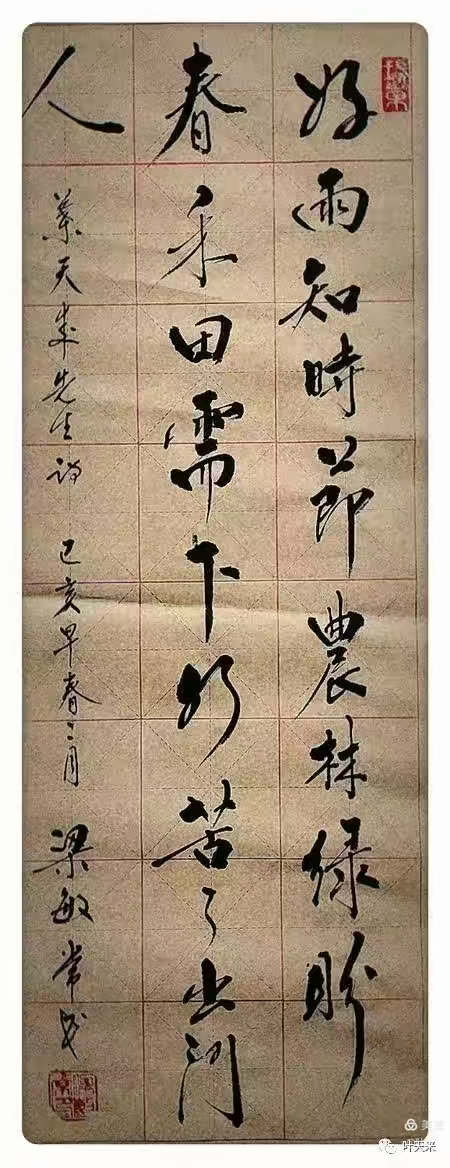 好雨知時節農林绿盼
春禾田需下好苦了出門
人
葉天來先生诗 己亥早春二月 梁敏常书
叶天来